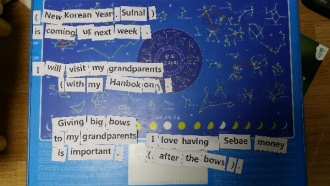 ( New Korean Year, Sulnal )
is coming up next week .
I will visit my grandparents
( with my Hanbok on ) .
Giving big bows
to my grandparents
is important .
I love having Sebae money
( after the bows ) .